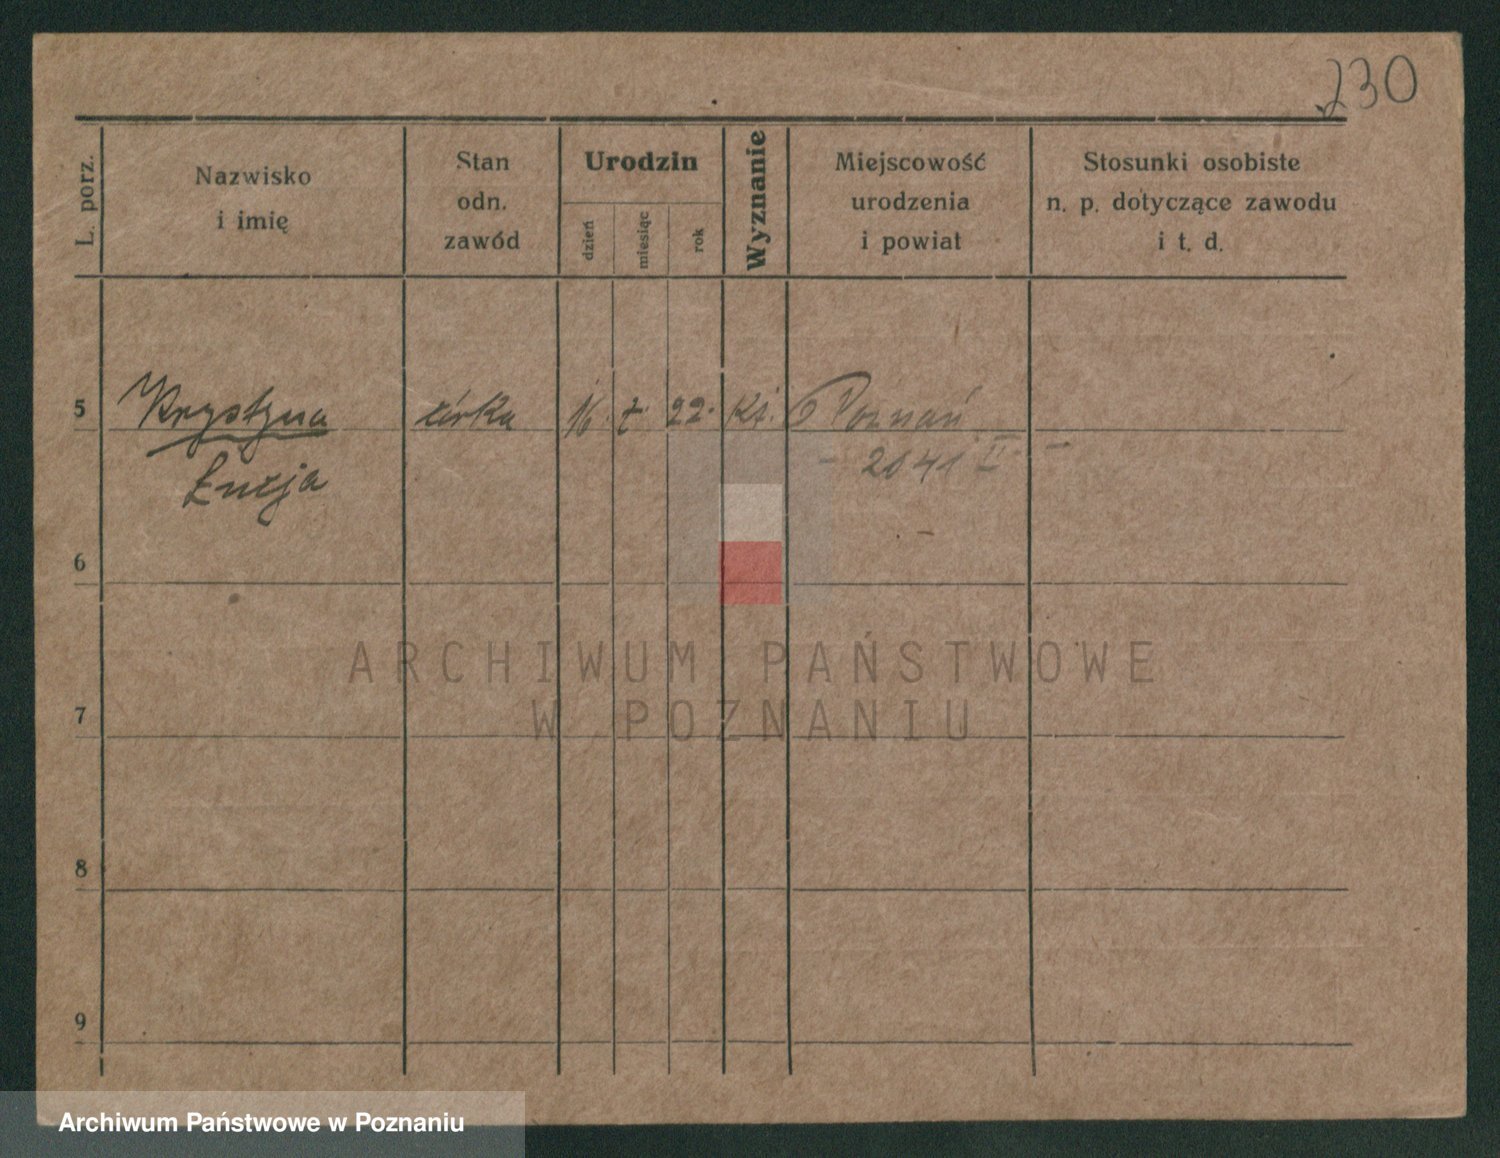 230
L. porz.
Nazwisko
i imię
Stan
odn.
zawód
Urodzin
dzień
miesiąc
rok
Wyznanie
Miejscowość
urodzenia
i powiat
Stosunki osobiste
n. p. dotyczące zawodu
i t. d.
5 Krystyna córka 16. 7. 22. kt. Poznań
Łucja - 2041 II -
6
7
8
9
ARCHIWUM PAŃSTWOWE
W POZNANIU
Archiwum Państwowe w Poznaniu